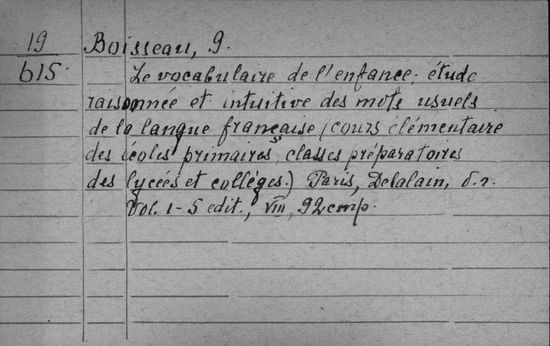 19 Boisseau, G.
615. Le vocabulaire de l'enfance; étude
raisonnée et intuitive des mots usuels
de la langue française (cours élémentaire
des écoles primaires, classes préparatoires
des lycées et collèges.) Paris, Delalain,
Vol. 1-5 edit., VIII, 92 cmp.